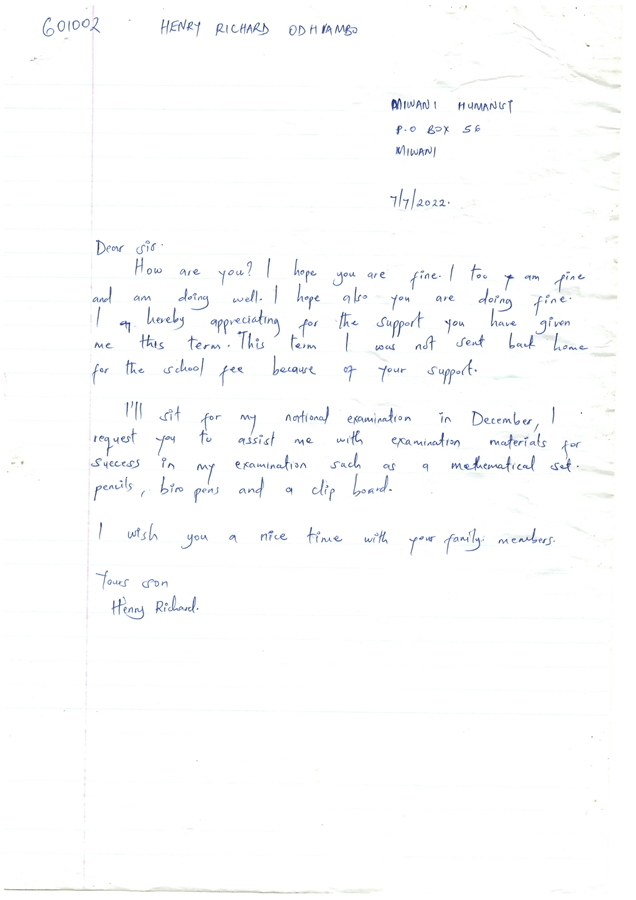 601002 HENRY RICHARD ODHIAMBO
MIWANI HUMANIST
P.O BOX 56
MIWANI
7/7/2022.
Dear sir.
How are you? I hope you are fine. I too am fine
and am doing well. I hope also you are doing fine.
I hereby appreciating for the support you have given
me this term. This term I was not sent back home
for the school fee because of your support.
I'll sit for my national examination in December, I
request you to assist me with examination materials for
success in my examination such as a mathematical set.
pencils, biro pens and a clip board.
I wish you a nice time with your family. members.
Yours son
Henry Richard.